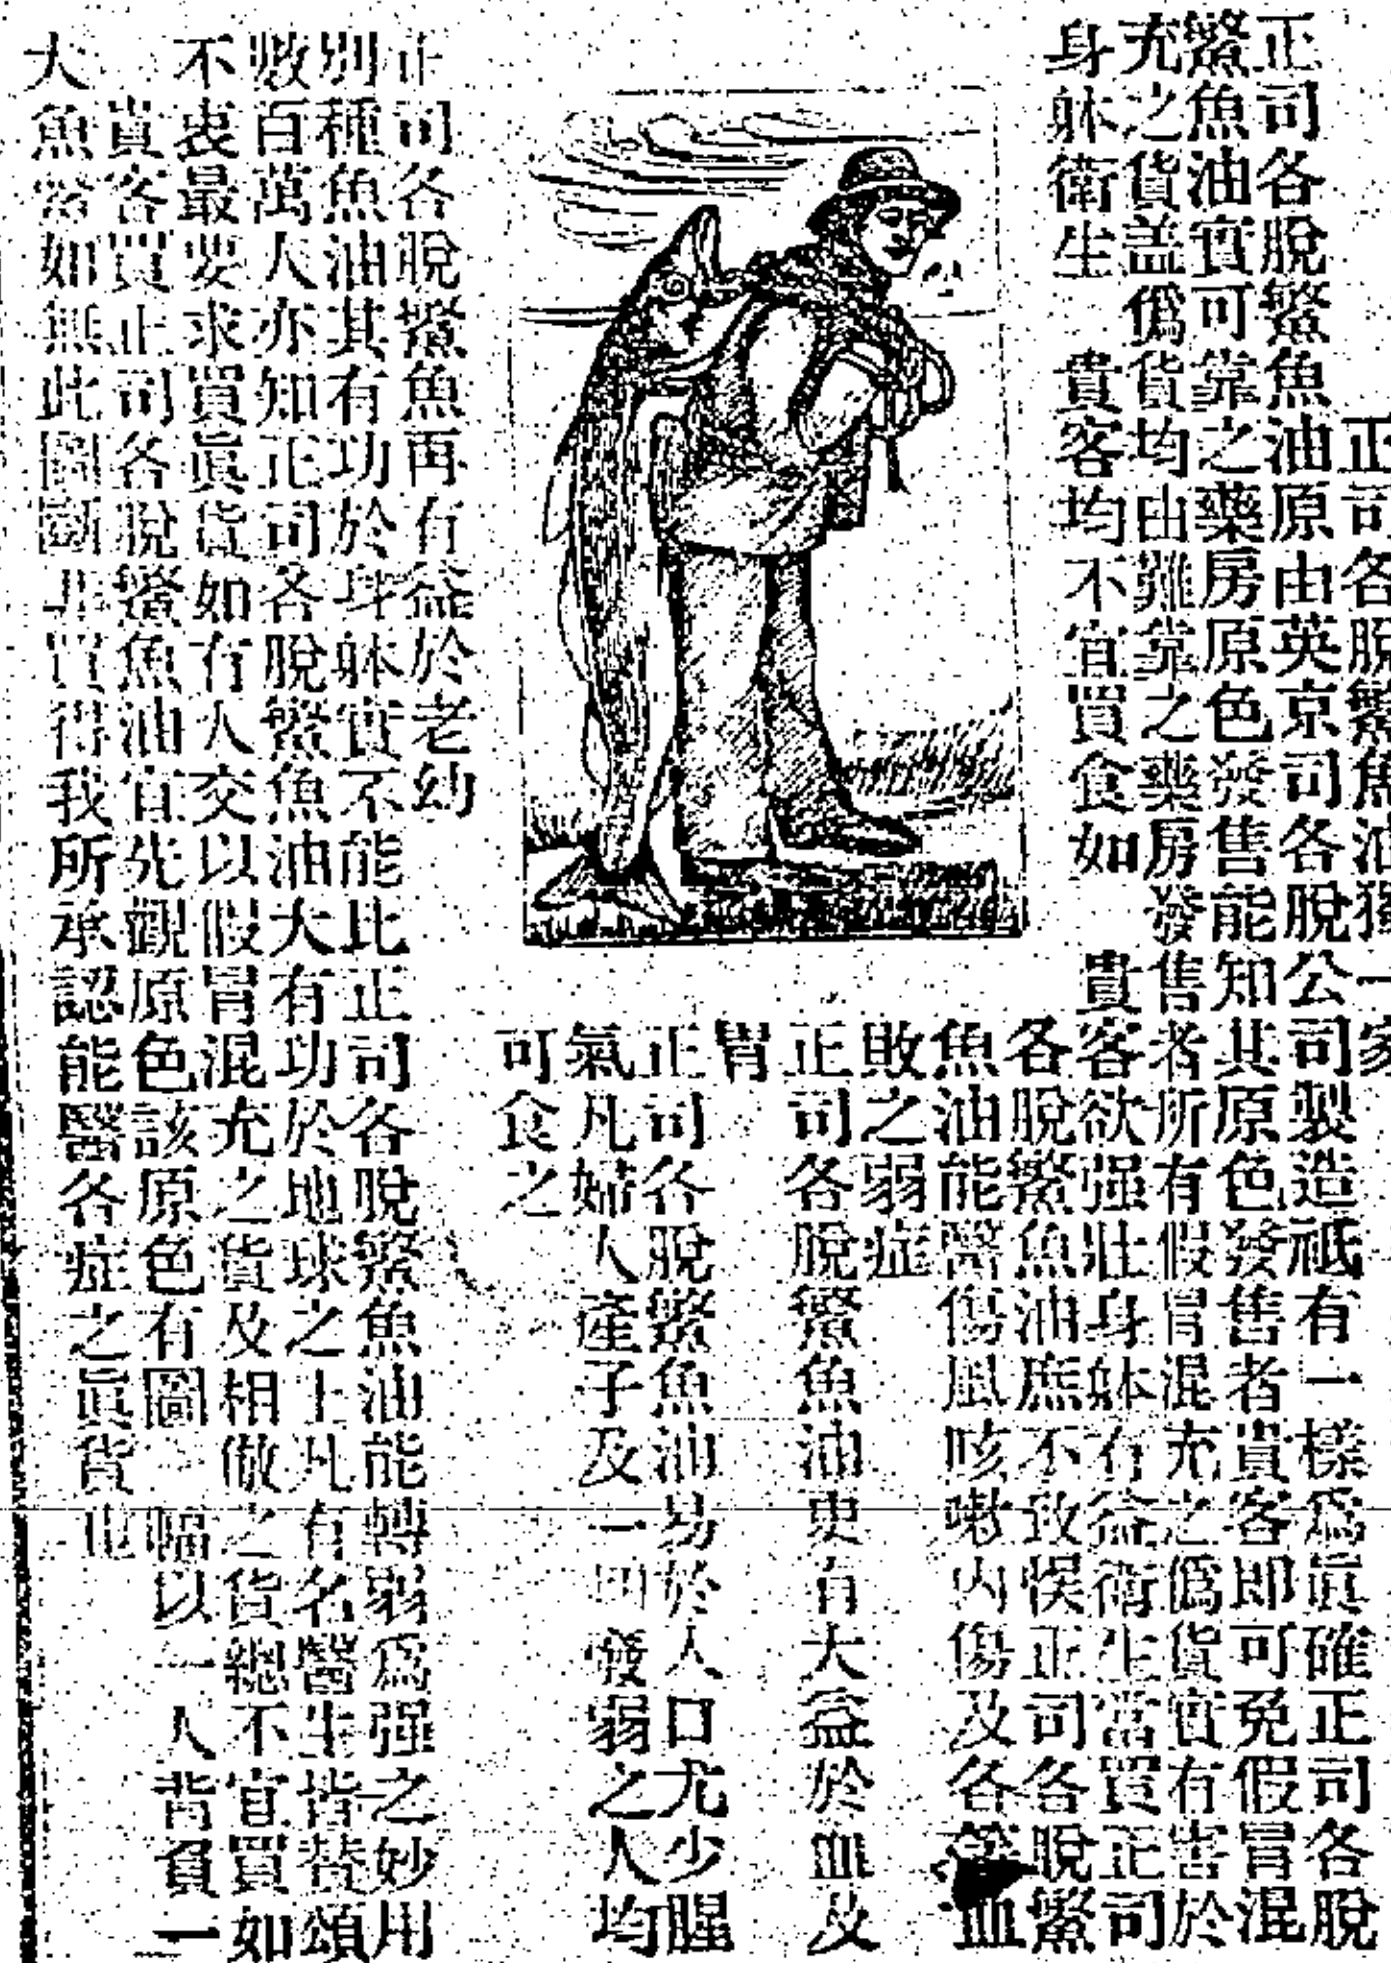 正司各脫鱉魚油獨一家
正司各脫鱉魚油原由英京司各脫公司製造祗有一樣爲眞確正司各脫
鱉魚油實可靠之藥房原色發售能知其原色發售者貴客即可免假冒混
充之貨盖僞貨均由難靠之藥房發售者所有假冒混充之僞貨實有害於
身躰衛生 貴客均不宜買食如
貴客欲强壯身躰有益衛生當買正司
各脫鱉魚油庶不致悞正司各脫鱉
魚油能醫傷風咳嗽內傷及各 血
敗之弱症
正司各脫鱉魚油更有大益於血及
胃
正司各脫鱉魚油易於人口尤少腥
氣凡婦人產子及一切發弱之人均
可食之
正司各脫鱉魚再有益於老幼
別種魚油其有功於身躰實不能比正司各脫鱉魚油能轉弱爲强之妙用
數百萬人亦知正司各脫鱉魚油大有功於地球之上凡有名醫生皆贊頌
不衰最要求買眞貨如有人交以假冒混充之貨及相倣之貨總不宜買如
貴客買正司各脫鱉魚油宜先觀原色該原色有圖一幅以一人背負一
大魚 如無此圖斷非買得我所承認能醫各症之眞貨也